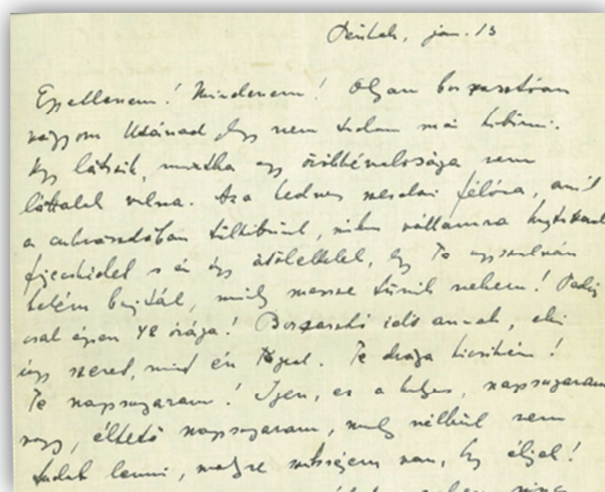 Péntek, jan. 13
Egyetlenem! Mindenem! Olyan borzasztóan
vágyom Utánad hogy nem tudom már kibírni.
Úgy látszik, mintha egy örökkévalósága nem
láttalak volna. Az a kedves szerdai félóra, amit
a cukrászdában töltöttünk, mikor vállamra hajtottad
fejecskédet s én úgy átöleltelek, hogy Te egészen
belém bújtál, mily messze tűnik nekem! Pedig
csak éppen 48 órája! Borzasztó idő annak, aki
úgy szeret, mint én Téged. Te drága kicsikém!
Te napsugaram! Igen, ez a helyes, napsugaram
vagy, éltető napsugaram, mely nélkül nem
tudok lenni, melyre szükségem van, hogy éljek!